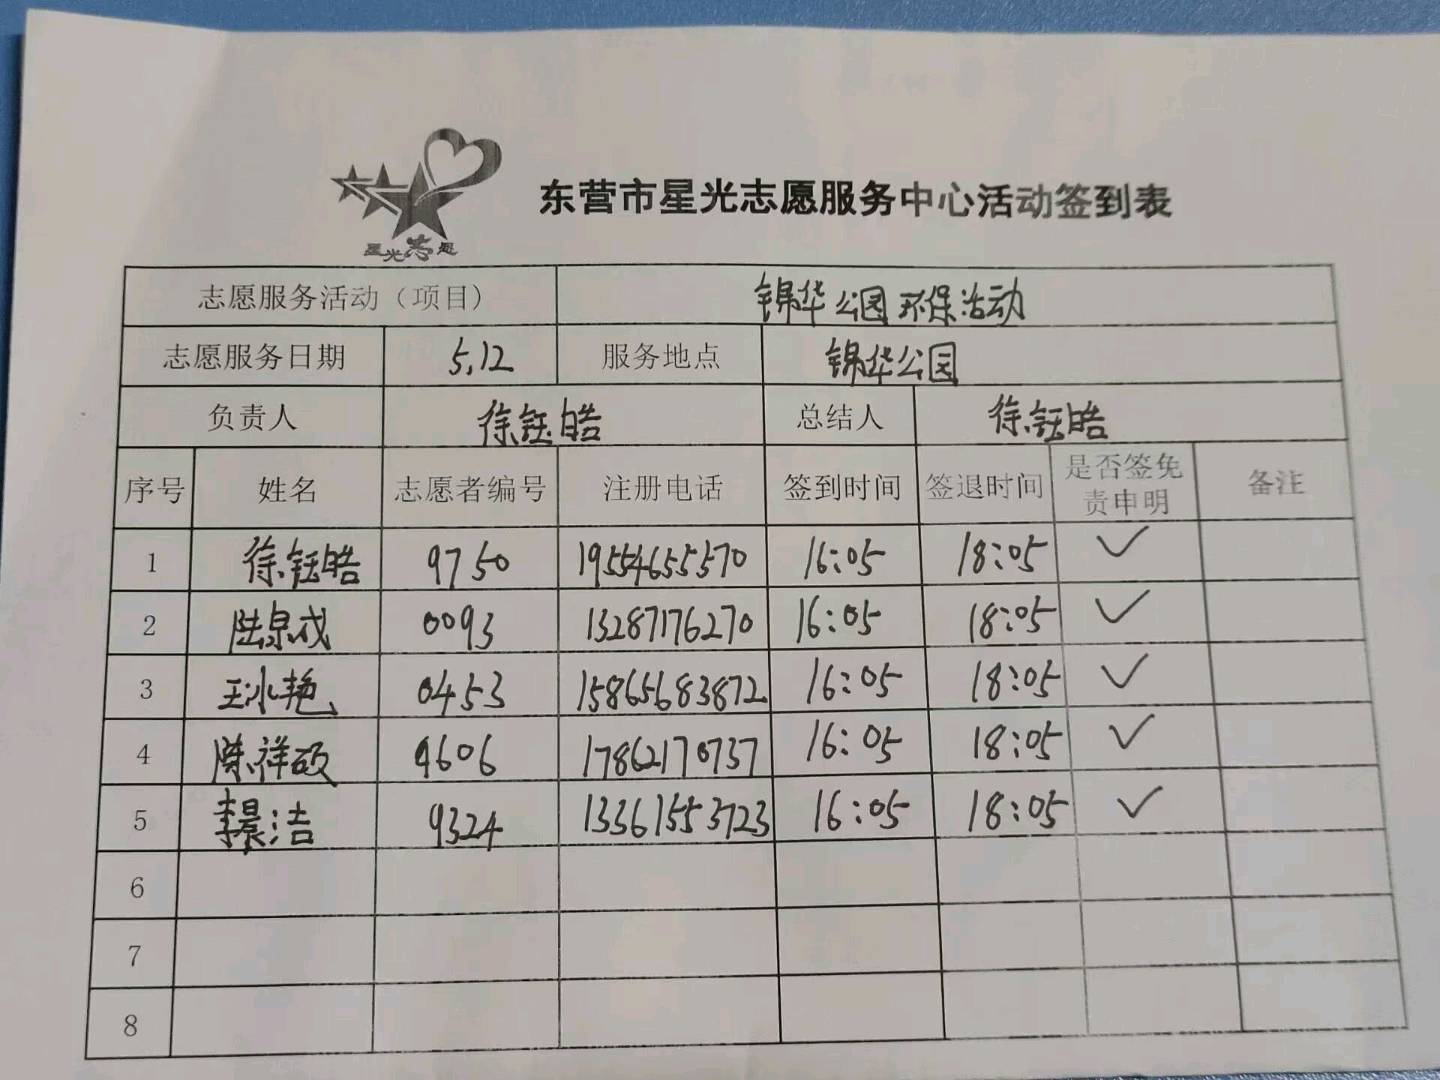 星光志愿
东营市星光志愿服务中心活动签到表
志愿服务活动（项目） 锦华公园环保活动
志愿服务日期 5.12 服务地点 锦华公园
负责人 徐钰皓 总结人 徐钰皓
序号 姓名 志愿者编号 注册电话 签到时间 签退时间 是否签免责申明 备注
1 徐钰皓 9750 19554655570 16:05 18:05 ✓
2 陆泉成 0093 13287176270 16:05 18:05 ✓
3 王冰艳 0453 15865683872 16:05 18:05 ✓
4 陈祥硕 9606 17862170737 16:05 18:05 ✓
5 李景洁 9324 13361553723 16:05 18:05 ✓
6
7
8